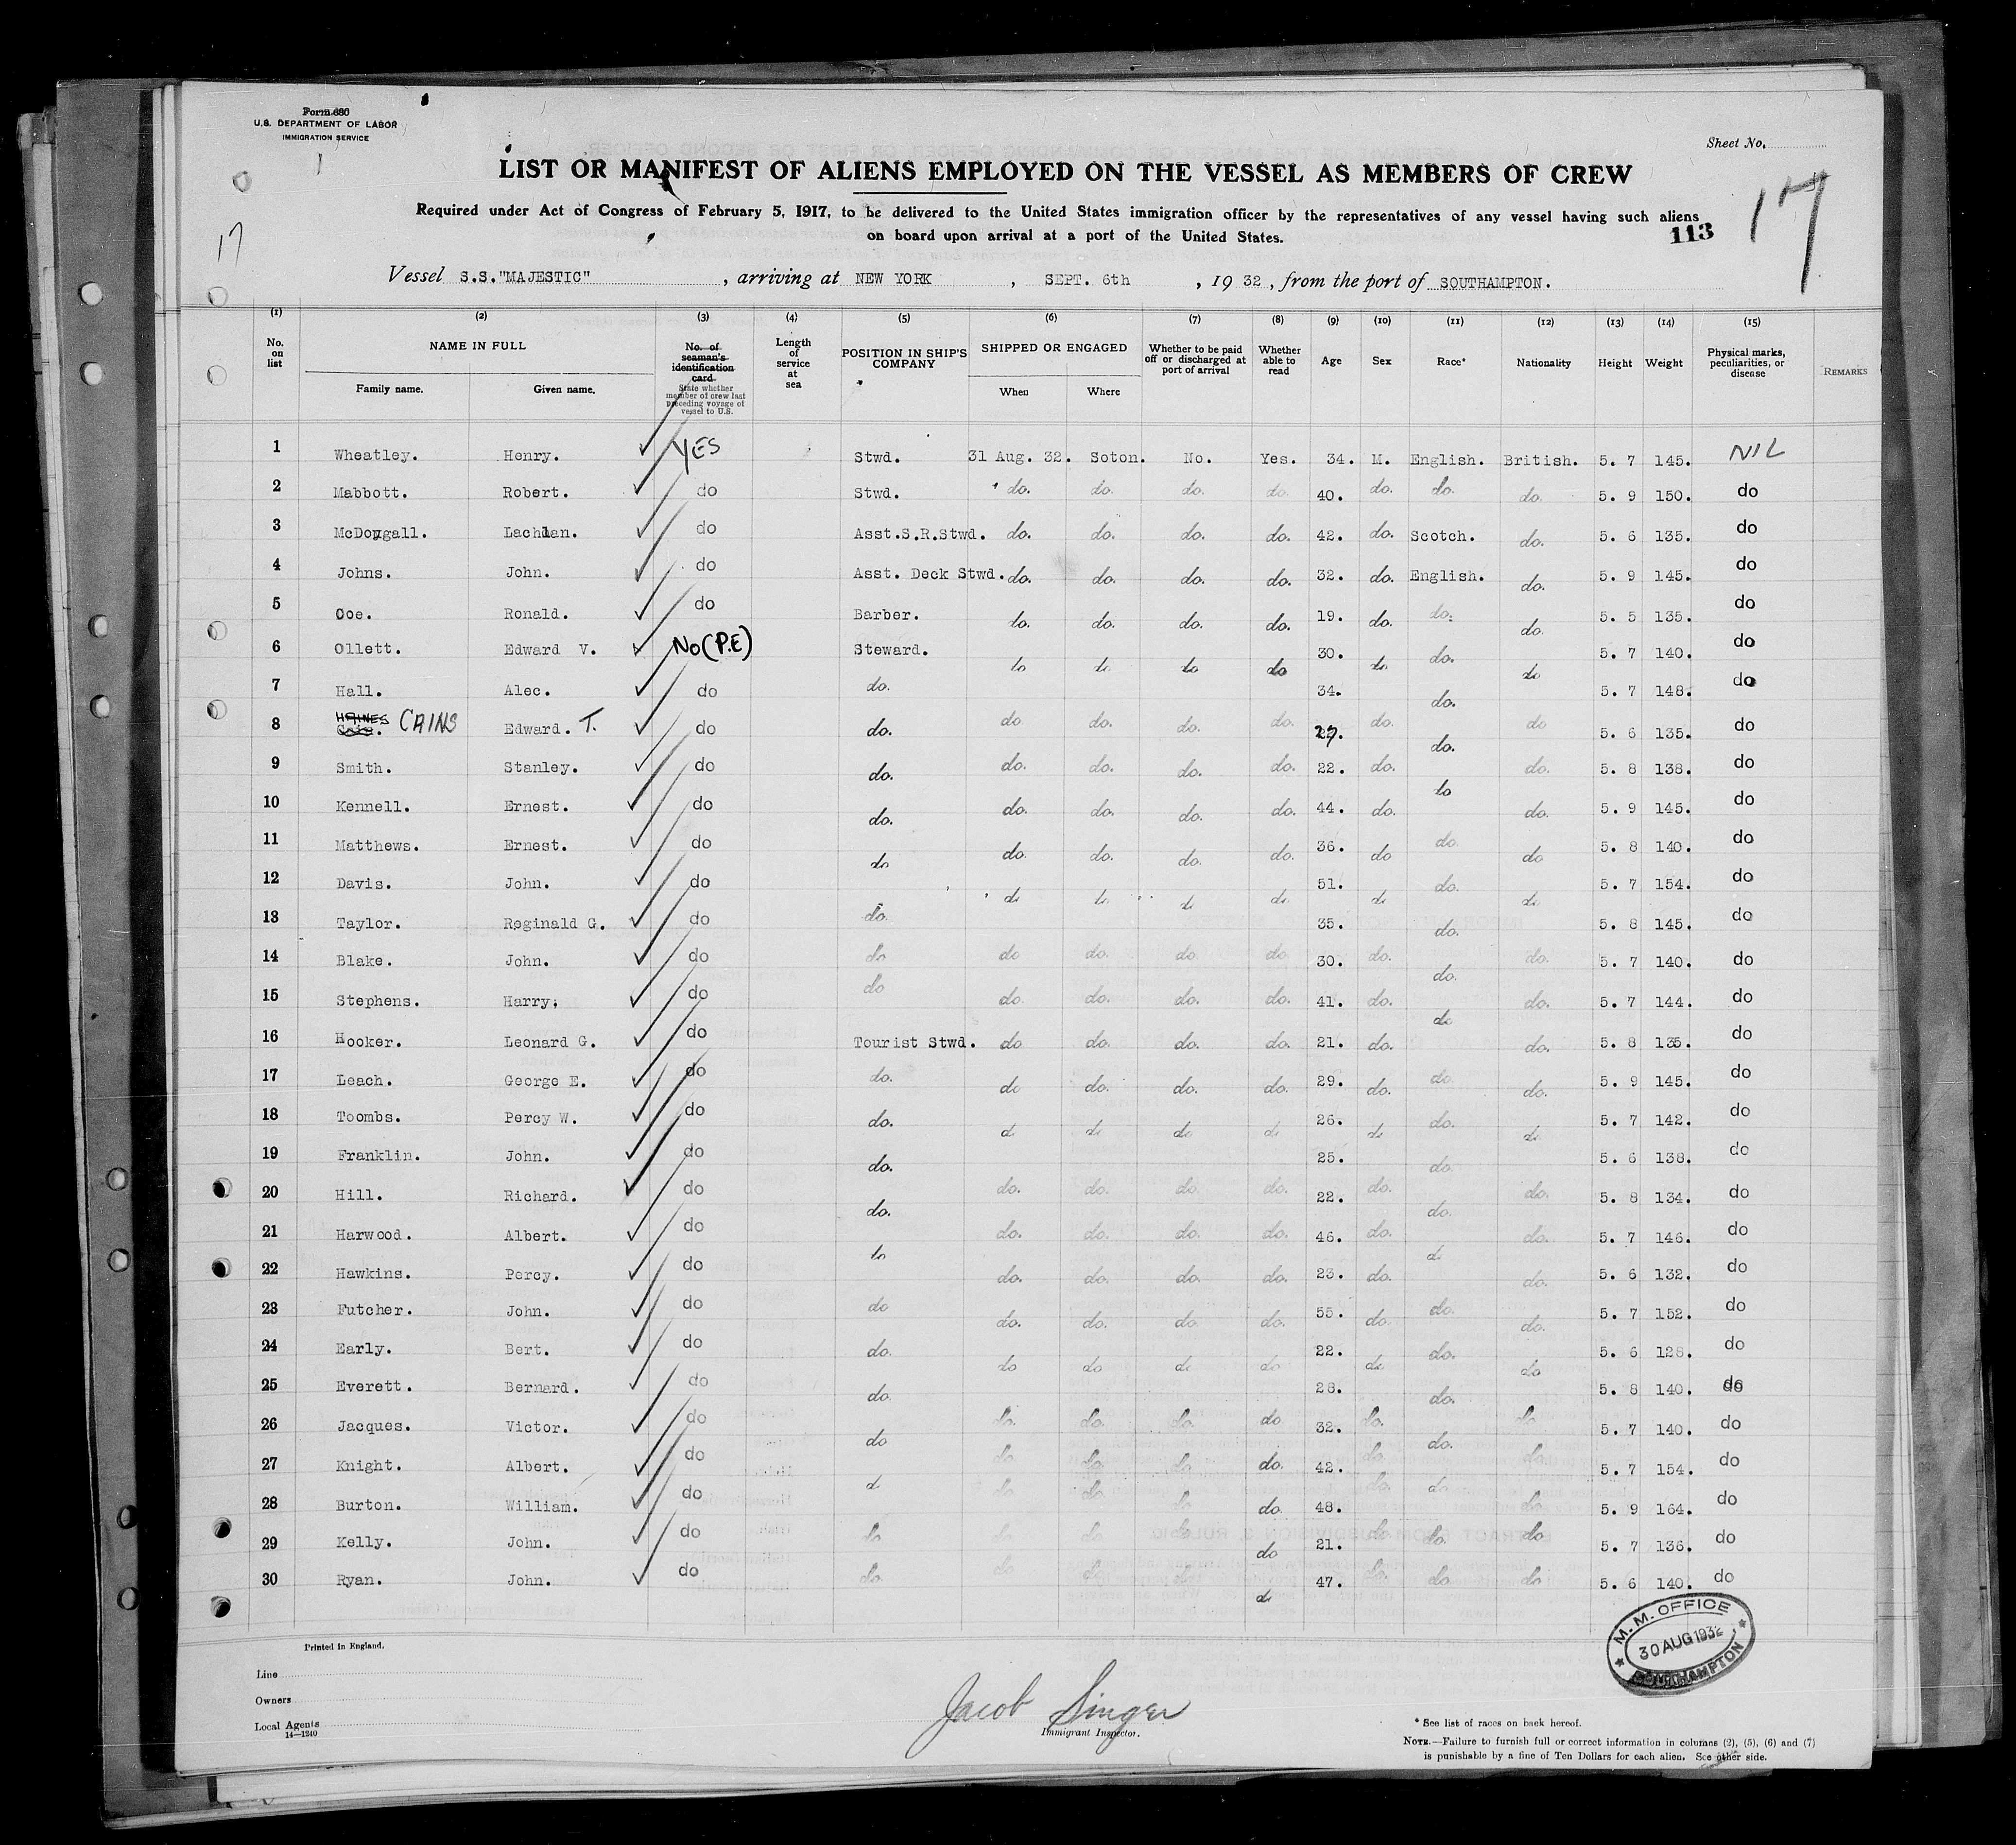 Form 680
U.S. DEPARTMENT OF LABOR
IMMIGRATION SERVICE
Sheet No.
LIST OR MANIFEST OF ALIENS EMPLOYED ON THE VESSEL AS MEMBERS OF CREW
17
17
Required under Act of Congress of February 5, 1917, to be delivered to the United States immigration officer by the representatives of any vessel having such aliens
on board upon arrival at a port of the United States.
113
Vessel S.S."MAJESTIC" , arriving at NEW YORK , SEPT. 6th , 1932 , from the port of SOUTHAMPTON.
(1) (2) (3) (4) (5) (6) (7) (8) (9) (10) (11) (12) (13) (14) (15)
No. on list NAME IN FULL Family name. Given name. No. of seaman's identification card State whether member of crew last preceding voyage of vessel to U.S. Length of service at sea POSITION IN SHIP'S COMPANY SHIPPED OR ENGAGED When Where Whether to be paid off or discharged at port of arrival Whether able to read Age Sex Race* Nationality Height Weight Physical marks, peculiarities, or disease REMARKS
1 Wheatley. Henry. YES Stwd. 31 Aug. 32. Soton. No. Yes. 34. M. English. British. 5. 7 145. NIL
2 Mabbott. Robert. do Stwd. do. do. do. do. 40. do. do. do. 5. 9 150. do
3 McDougall. Lachlan. do Asst.S.R.Stwd. do. do. do. do. 42. do. Scotch. do. 5. 6 135. do
4 Johns. John. do Asst. Deck Stwd. do. do. do. do. 32. do. English. do. 5. 9 145. do
5 Coe. Ronald. do Barber. do. do. do. do. 19. do. do. do. 5. 5 135. do
6 Ollett. Edward V. No (P.E) Steward. do do do do 30. do do. do 5. 7 140. do
7 Hall. Alec. do do. 34. do. 5. 7 148. do
8 HAINES CAINS Edward. T. do do. do do. do. do. 27. do. do. do 5. 6 135. do
9 Smith. Stanley. do do. do. do. do. do. 22. do. do do. 5. 8 138. do
10 Kennell. Ernest. do do. do. do. do. do. 44. do. do. 5. 9 145. do
11 Matthews. Ernest. do do do. do. do. do. 36. do do. do 5. 8 140. do
12 Davis. John. do do do do do 51. do do. do 5. 7 154. do
13 Taylor. Reginald G. do do. 35. do. 5. 8 145. do
14 Blake. John. do do do do. do. do. 30. do. do. do. 5. 7 140. do
15 Stephens. Harry. do do do. do. do. do. 41. do. do do. 5. 7 144. do
16 Hooker. Leonard G. do Tourist Stwd. do do. do. do. 21. do. do. 5. 8 135. do
17 Leach. George E. do do. do do. do. do. 29. do. do. do. 5. 9 145. do
18 Toombs. Percy W. do do. do do do do 26. do do. do 5. 7 142. do
19 Franklin. John. do do. 25. do. 5. 6 138. do
20 Hill. Richard. do do. do. do. do. do. 22. do. do. do. 5. 8 134. do
21 Harwood. Albert. do do do. do. do. do. 46. do. do do. 5. 7 146. do
22 Hawkins. Percy. do do. do. do. do. 23. do. do. 5. 6 132. do
23 Futcher. John. do do do. do. do. do. 55. do. do. do. 5. 7 152. do
24 Early. Bert. do do. do do do do 22. do do. do 5. 6 128. do
25 Everett. Bernard. do do. 28. do. 5. 8 140. do
26 Jacques. Victor. do do do. do. do. do 32. do. do. do 5. 7 140. do
27 Knight. Albert. do do do do do do. 42. do. do do. 5. 7 154. do
28 Burton. William. do do do do do 48. do do. 5. 9 164. do
29 Kelly. John. do do do do do do 21. do. do. do 5. 7 136. do
30 Ryan. John. do do. do do do do 47. do. do. do 5. 6 140. do
M. M. OFFICE
30 AUG 1932
SOUTHAMPTON
Printed in England.
Line
Owners
Local Agents
14—1240
Jacob Singer
Immigrant Inspector.
* See list of races on back hereof.
NOTE.—Failure to furnish full or correct information in columns (2), (5), (6) and (7)
is punishable by a fine of Ten Dollars for each alien. See other side.